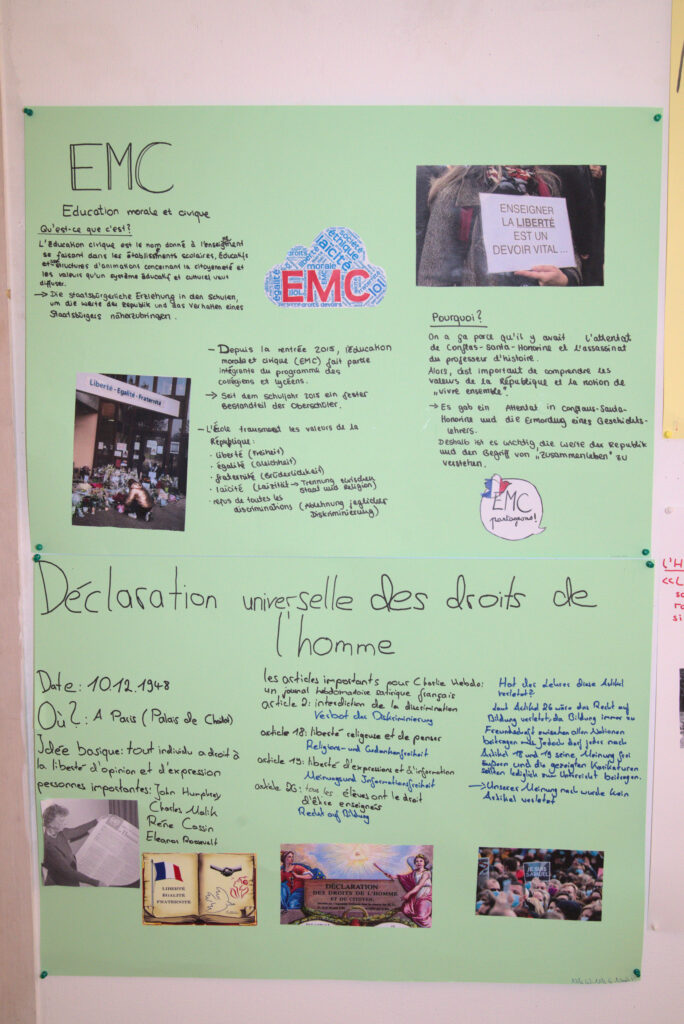 EMC
Education morale et civique
Qu'est-ce que c'est?
L'Éducation civique est le nom donné à l'enseignement
se faisant dans les établissements scolaires, éducatifs
et structures d'animations concernant la citoyenneté et
les valeurs qu'un système éducatif et culturel veut
diffuser.
→ Die staatsbürgerliche Erziehung in den Schulen,
um die Werte der Republik und das Verhalten eines
Staatsbürgers näherzubringen.
société
éthique
laïcité
droits
morale
égalité
EMC
loi
droits devoirs
ENSEIGNER
LA LIBERTÉ
EST UN
DEVOIR VITAL...
Pourquoi?
On a ça parce qu'il y avait l'attentat
de Conflas-Santa-Honorine et l'assassinat
du professeur d'histoire.
Alors, c'est important de comprendre les
valeurs de la République et la notion de
„vivre ensemble".
→ Es gab ein Attentat in Conflans-Santa-
Honorine und die Ermordung eines Geschichts-
lehrers.
Deshalb ist es wichtig die Werte der Republik
und den Begriff von „Zusammenleben" zu
verstehen.
EMC
partageons!
Liberté - Egalité - Fraternité
→ Depuis la rentrée 2015, l'Éducation
morale et civique (EMC) fait partie
intégrante du programme des
collégiens et lycéens.
→ Seit dem Schuljahr 2015 ein fester
Bestandteil der Oberschüler.
- L'École transmet les valeurs de la
République:
· liberté (Freiheit)
· égalité (Gleichheit)
· fraternité (Brüderlichkeit)
· laïcité (Laizität → Trennung zwischen
Staat und Religion)
· refus de toutes les
discriminations (Ablehnung jeglicher
Diskriminierung)
Déclaration universelle des droits de
l'homme
Date: 10.12.1948
Où?: A Paris (Palais de Chaillot)
Idée basique: tout individu a droit à
la liberté d'opinion et d'expression
personnes importantes: John Humphrey
Charles Malik
Réne Cassin
Eleanor Roosevelt
les articles importants pour Charlie Hebdo:
un journal hebdomadaire satirique français
article 2: interdiction de la discrimination
Verbot der Diskriminierung
article 18: liberté religeuse et de penser
Religions- und Gedankenfreiheit
article 19: liberté d'expressions et d'information
Meinung und Informationsfreiheit
article 26: tous les élèves ont le droit
d'être enseignés
Recht auf Bildung
Hat der Lehrer diese Artikel
verletzt?
Laut Artikel 26 wäre das Recht auf
Bildung verletzt, da Bildung immer zu
Freundschaft zwischen allen Nationen
beitragen muss. Jedoch darf jeder nach
Artikel 18 und 19 seine Meinung frei
äußern und die gezeigten Karikaturen
sollten lediglich zum Unterricht beitragen.
→ Unserer Meinung nach wurde kein
Artikel verletzt
LIBERTÉ
EGALITÉ
FRATERNITÉ
DÉCLARATION
DES DROITS DE L'HOMME
ET DU CITOYEN
JE SUIS
SAMUEL
L'H